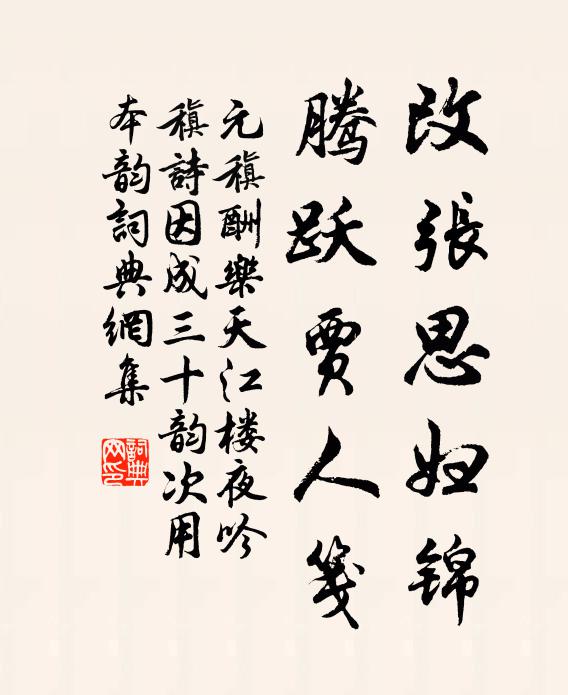 改張思妇锦
腾跃賈人箋
元稹酬樂天江楼夜吟
稹詩因成三十韵次用
本韵詞典網集
詞典網印